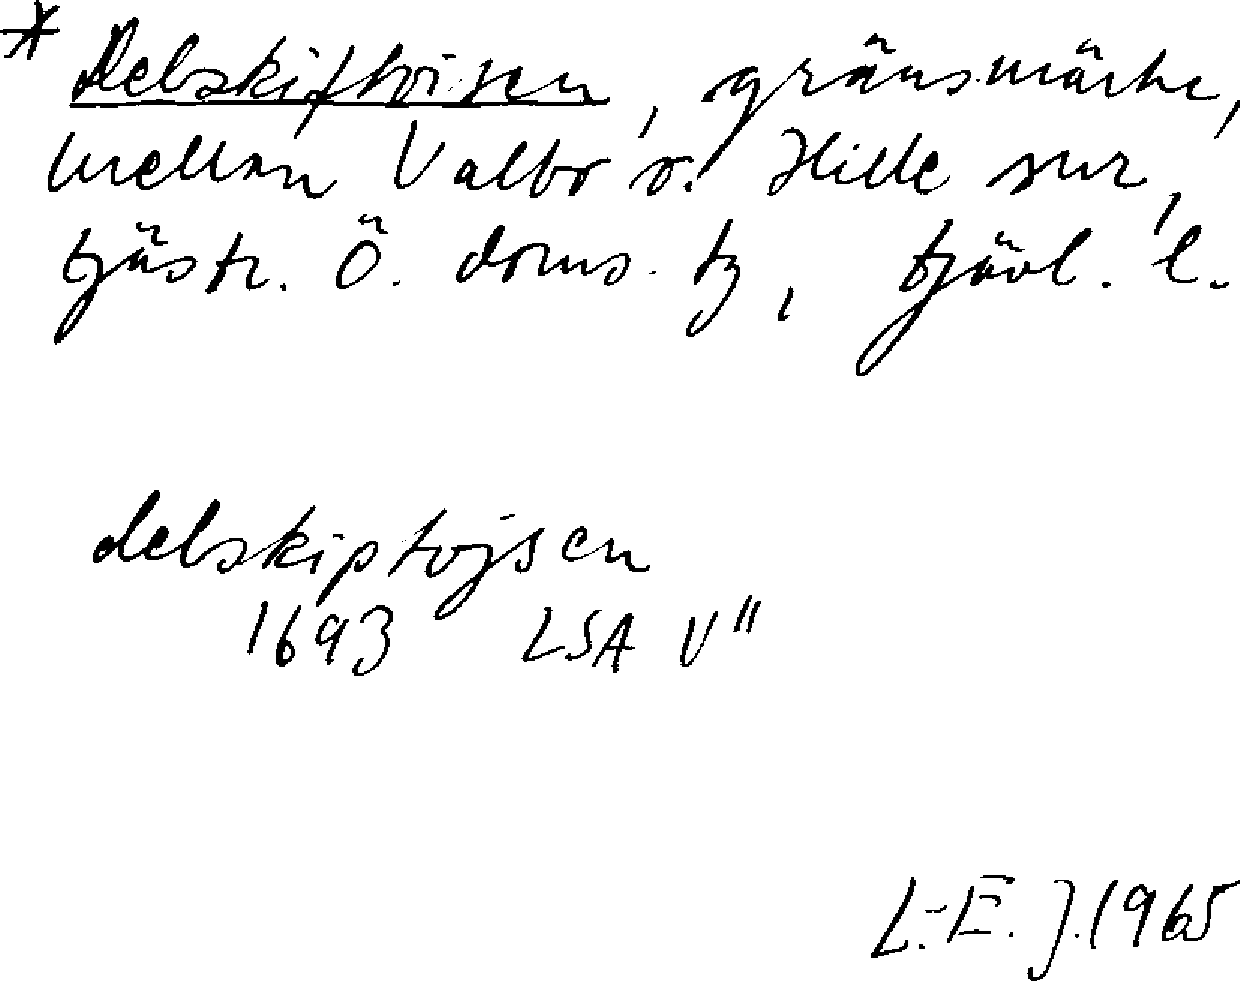 * Delskiftröisen, gränsmärke,
mellan Valbo o. Hille snr,
Gästr. Ö. doms. tg, Gävl. l.
delskiptojsen
1693 LSA V"
L.-E. J. 1965